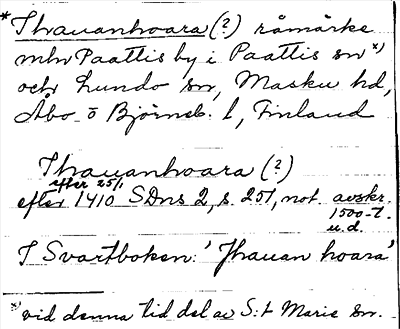 * Thauanhoara (?) råmärke
mln Paattis by i Paattis sn *)
och Lundo sn, Masku hd,
Åbo o Björneb. l, Finland
Thauanhoara (?)
efter 25/1
efter 1410 SDns 2, s. 251, not. avskr.
1500-t.
u.d.
I Svartboken: 'Thauan hoara'
*) vid denna tid del av S:t Marie sn.